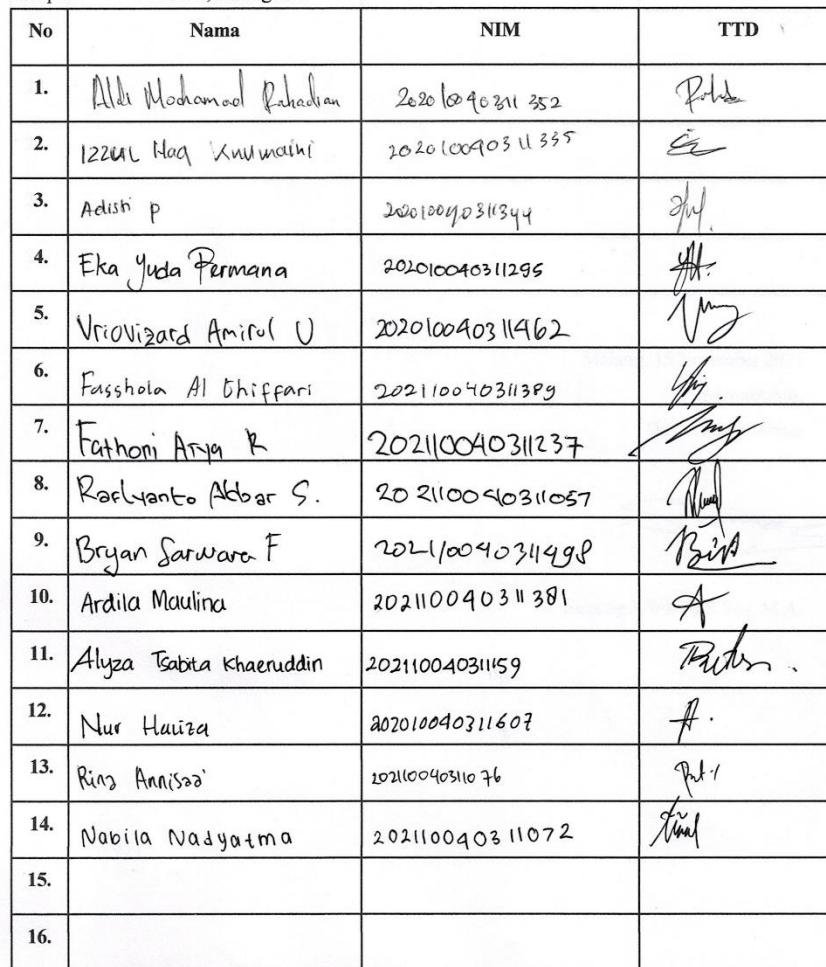 No Nama NIM TTD
1. Aldi Mochamad Rahadian 202010040311352
2. Izzul Haq Khumaini 202010040311335
3. Adisti P 202010040311344
4. Eka Yuda Permana 202010040311295
5. Vriovizard Amirul U 202010040311462
6. Fasshola Al Ghiffari 202110040311389
7. Fathoni Arya R 202110040311237
8. Raflyanto Akbar S. 202110040311057
9. Bryan Sarwara F 202110040311498
10. Ardila Maulina 202110040311381
11. Alyza Tsabita Khaeruddin 202110040311159
12. Nur 202010040311607
13. Rina Annisaa' 202110040311076
14. Nabila Nadyatma 202110040311072
15.
16.